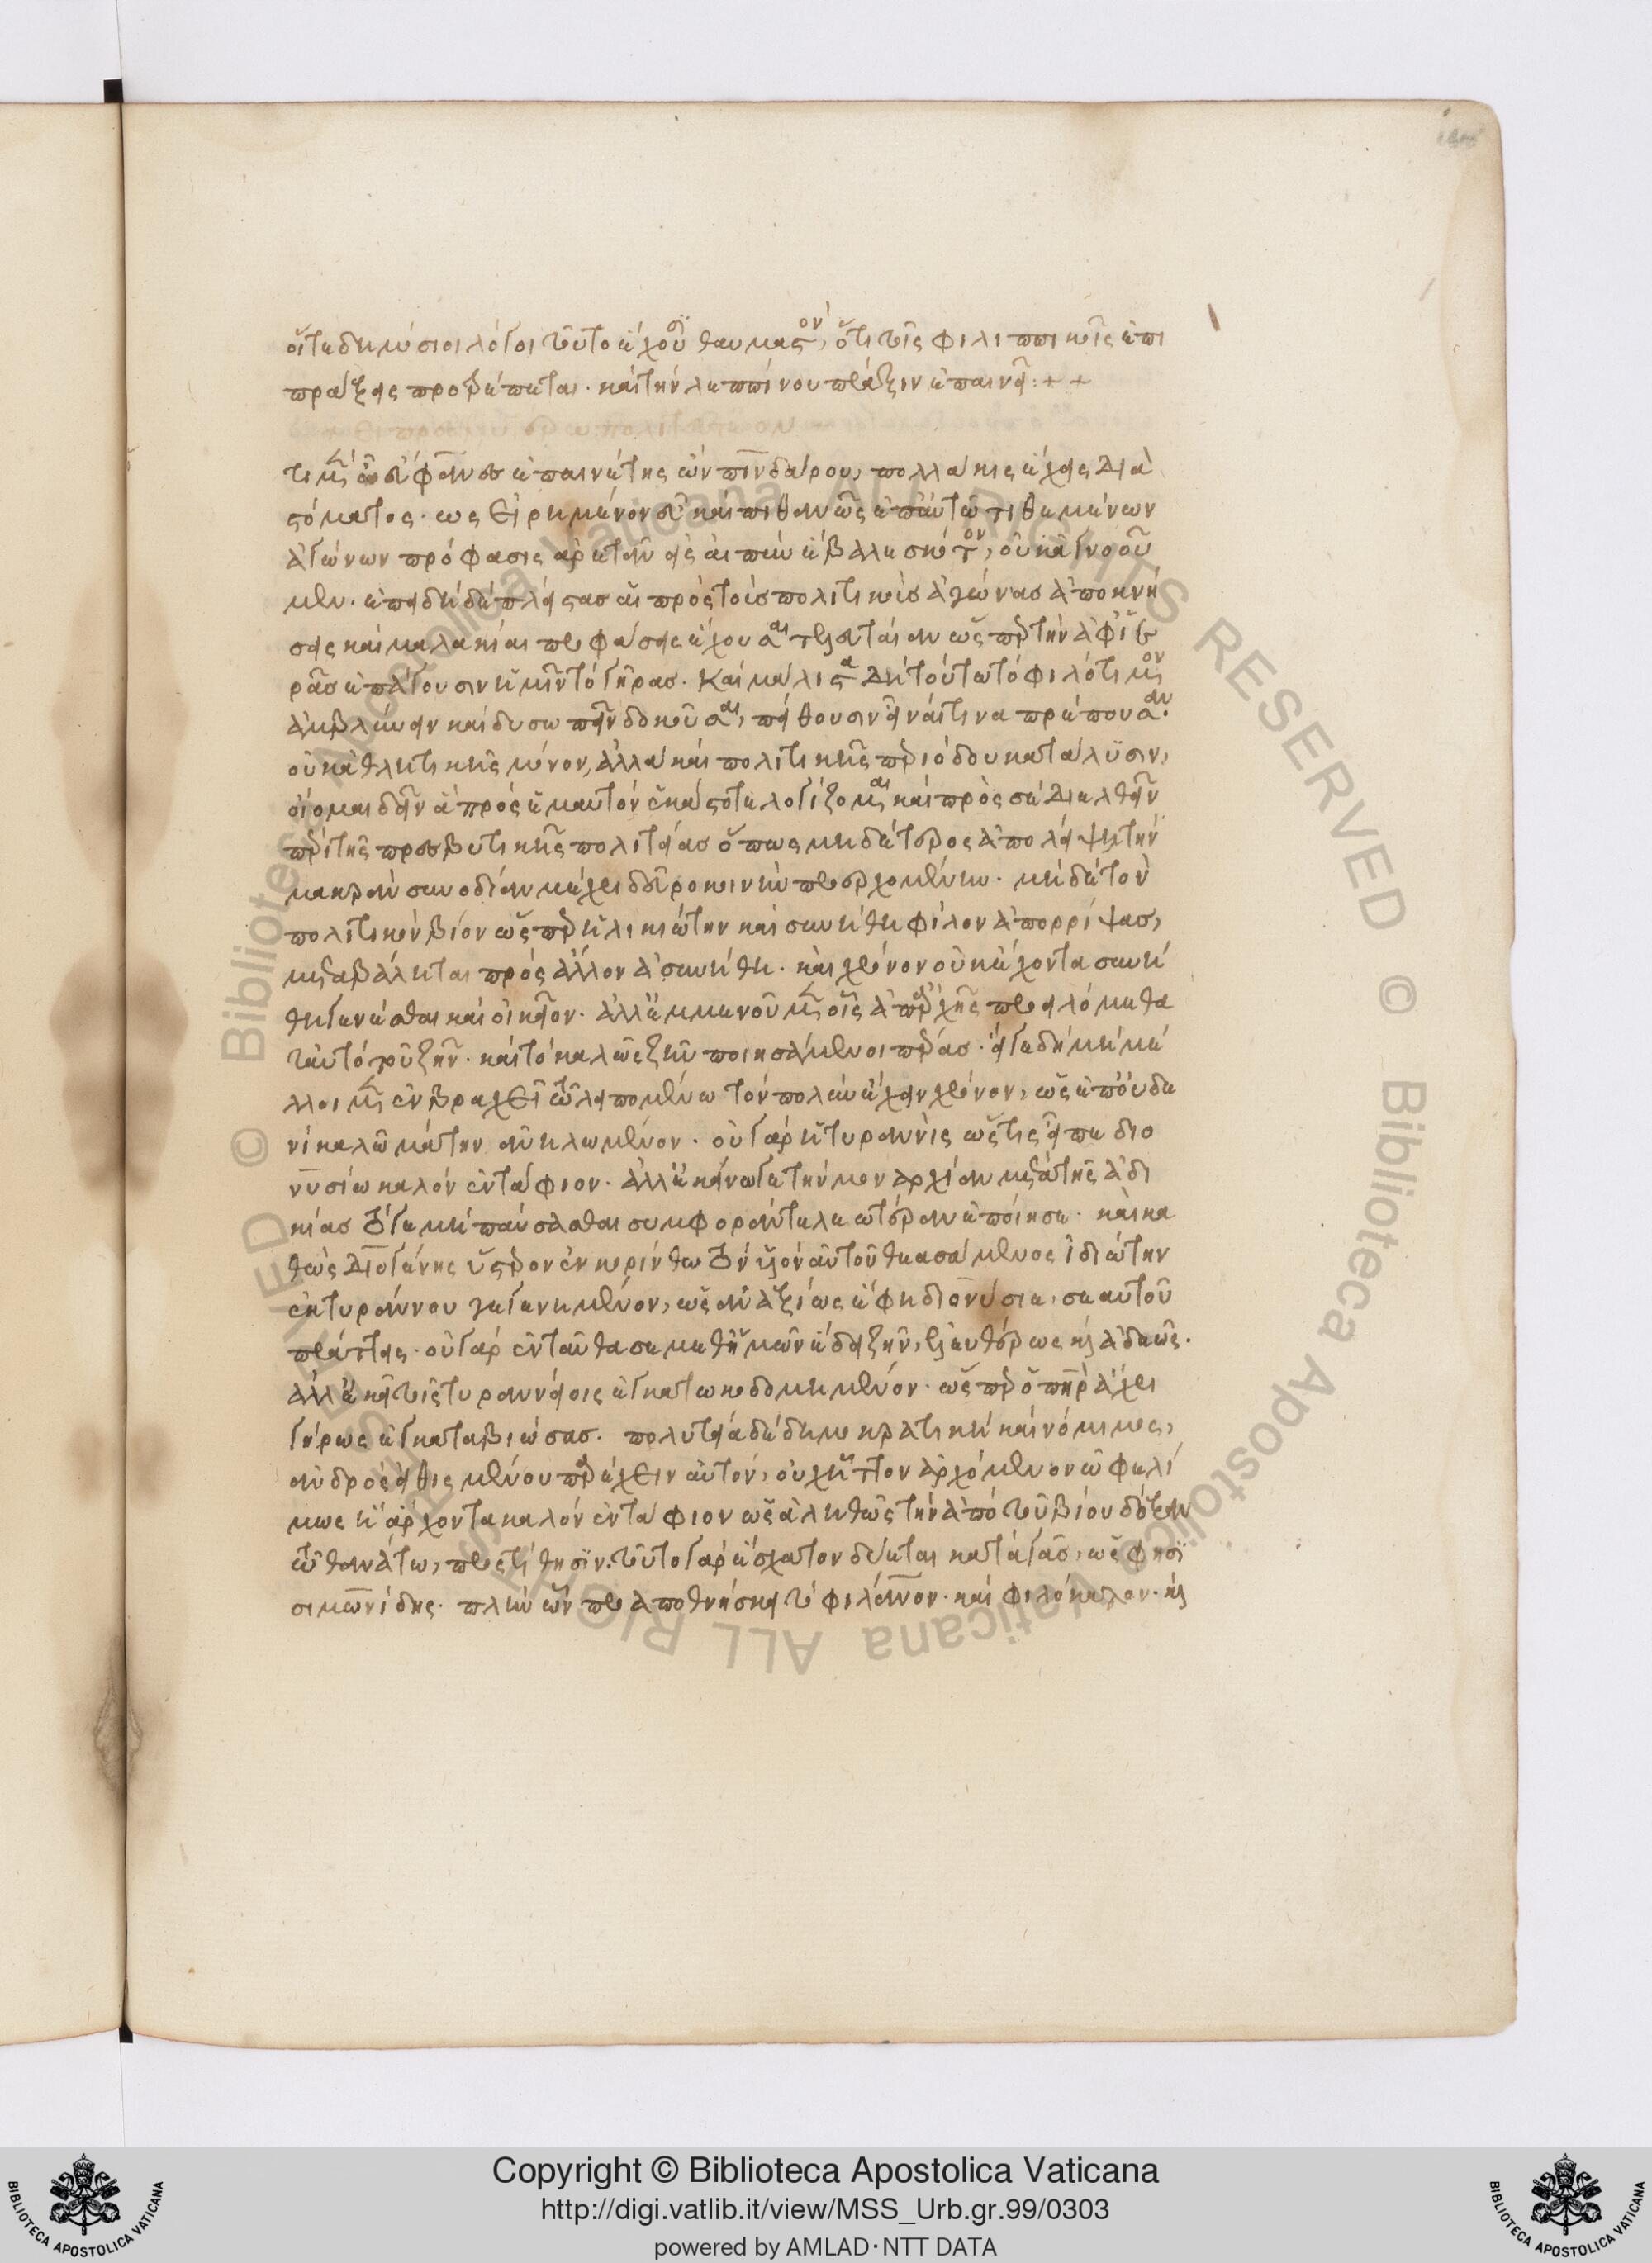 οἵ γε δημόσιοι λόγοι τοῦτο ἔχουσι θαυμαστόν, ὅτι τοῖς φιλιππικοῖς ἐπι
πράξεις προτρέπεται. καὶ τὴν λεππίνου πρᾶξιν ἐπαινεῖ :+ +
ὅτι μὲν ὦ εὔφανες ἐπαινέτης ὢν πινδάρου, πολλάκις ἔχεις διὰ
στόματος. ὡς εἰρημένον εὖ καὶ πιθανῶς ὑπ' αὐτῶ τιθεμένων
ἀγώνων πρόφασις ἀρετὰν ἐς αἰπὺν ἔβαλε σκότον, οὐκ ἀγνοοῦ
μεν. ἐπειδὴ δὲ πλείστας αἱ πρὸς τοὺς πολιτικοὺς ἀγῶνας ἀποκνή
σεις καὶ μαλακίαι προφάσεις ἔχουσαι τελευταίαν ὥσπερ τὴν ἀφ' ἱε
ρᾶς ἐπάγουσιν ἡμῖν τὸ γῆρας. Καὶ μάλιστα δὴ τούτω τὸ φιλότιμον
ἀμβλύνειν καὶ δυσωπεῖν δοκοῦσαι, πείθουσιν εἶναί τινα πρέπουσαν
οὐκ ἀθλητικῆς μόνον, ἀλλὰ καὶ πολιτικῆς περιόδου κατάλυσιν,
οἴομαι δεῖν ἃ πρὸς ἐμαυτὸν ἑκάστοτε λογίζομαι καὶ πρὸς σὲ διελθεῖν
περὶ τῆς πρεσβυτικῆς πολιτείας ὅπως μηδέτερος ἀπολείψει τὴν
μακρὰν συνοδίαν μέχρι δεῦρο κοινὴν προερχομένην. μηδὲ τὸν
πολιτικὸν βίον ὥσπερ ἡλικιώτην καὶ συνήθη φίλον ἀπορρίψας,
μεταβάληται πρὸς ἄλλον ἀσυνήθη. καὶ χρόνον οὐκ ἔχοντα συνή
θη γενέσθαι καὶ οἰκεῖον. ἀλλ' ἐμμενοῦμεν οἷς ἀπ' ἀρχῆς προειλόμεθα
ταὐτὸ τοῦ ζῆν. καὶ τὸ καλῶς ζῆν ποιησάμενοι πέρας. εἴγε δὴ μὴ μέ
λλοιμεν ἐν βραχεῖ τῶ λειπομένω τὸν πολὺν ἐλέγχειν χρόνον, ὡς ἐπ' οὐδε
νὶ καλῶ μάτην ἀνηλωμένον. οὐ γὰρ ἡ τυραννὶς ὥς τις εἶπε διο
νυσίω καλὸν ἐντάφιον. ἀλλ' ἐκείνω γε τὴν μοναρχίαν μετὰ τῆς ἀδι
κίας τό γε μὴ παύσασθαι συμφορὰν τελεωτέραν ἐποίησε. καὶ κα
θὼς διογένης ὕστερον ἐν κορίνθω τὸν υἱὸν αὐτοῦ θεασάμενος ἰδιώτην
ἐκ τυράννου γεγενημένον, ὡς ἀναξίως ἔφη διονύσιε, σεαυτοῦ
πράττεις. οὐ γὰρ ἐνταῦθά σε μεθ' ἡμῶν ἔδει ζῆν, ἐλευθέρως καὶ ἀδεῶς.
ἀλλ' ἐκεῖ τοῖς τυραννείοις ἐγκατωκοδομημένον. ὥσπερ ὁ πατὴρ ἄχρι
γήρως ἐγκαταβιώσας. πολιτεία δὲ δημοκρατικὴ καὶ νόμιμος,
ἀνδρὸς εἰθισμένου παρέχειν αὑτόν, οὐχ ἧττον ἀρχόμενον ὠφελί
μως ἢ ἄρχοντα καλὸν ἐντάφιον ὡς ἀληθῶς τὴν ἀπὸ τοῦ βίου δόξαν
τῶ θανάτω, προστίθησιν. τοῦτο γὰρ ἔσχατον δύεται κατὰ γᾶς, ὥς φησι
σιμωνίδης. πλὴν ὧν προαποθνήσκει τὸ φιλάνθρωπον. καὶ φιλόκαλον. καὶ
Copyright © Biblioteca Apostolica Vaticana
http://digi.vatlib.it/view/MSS_Urb.gr.99/0303
powered by AMLAD·NTT DATA